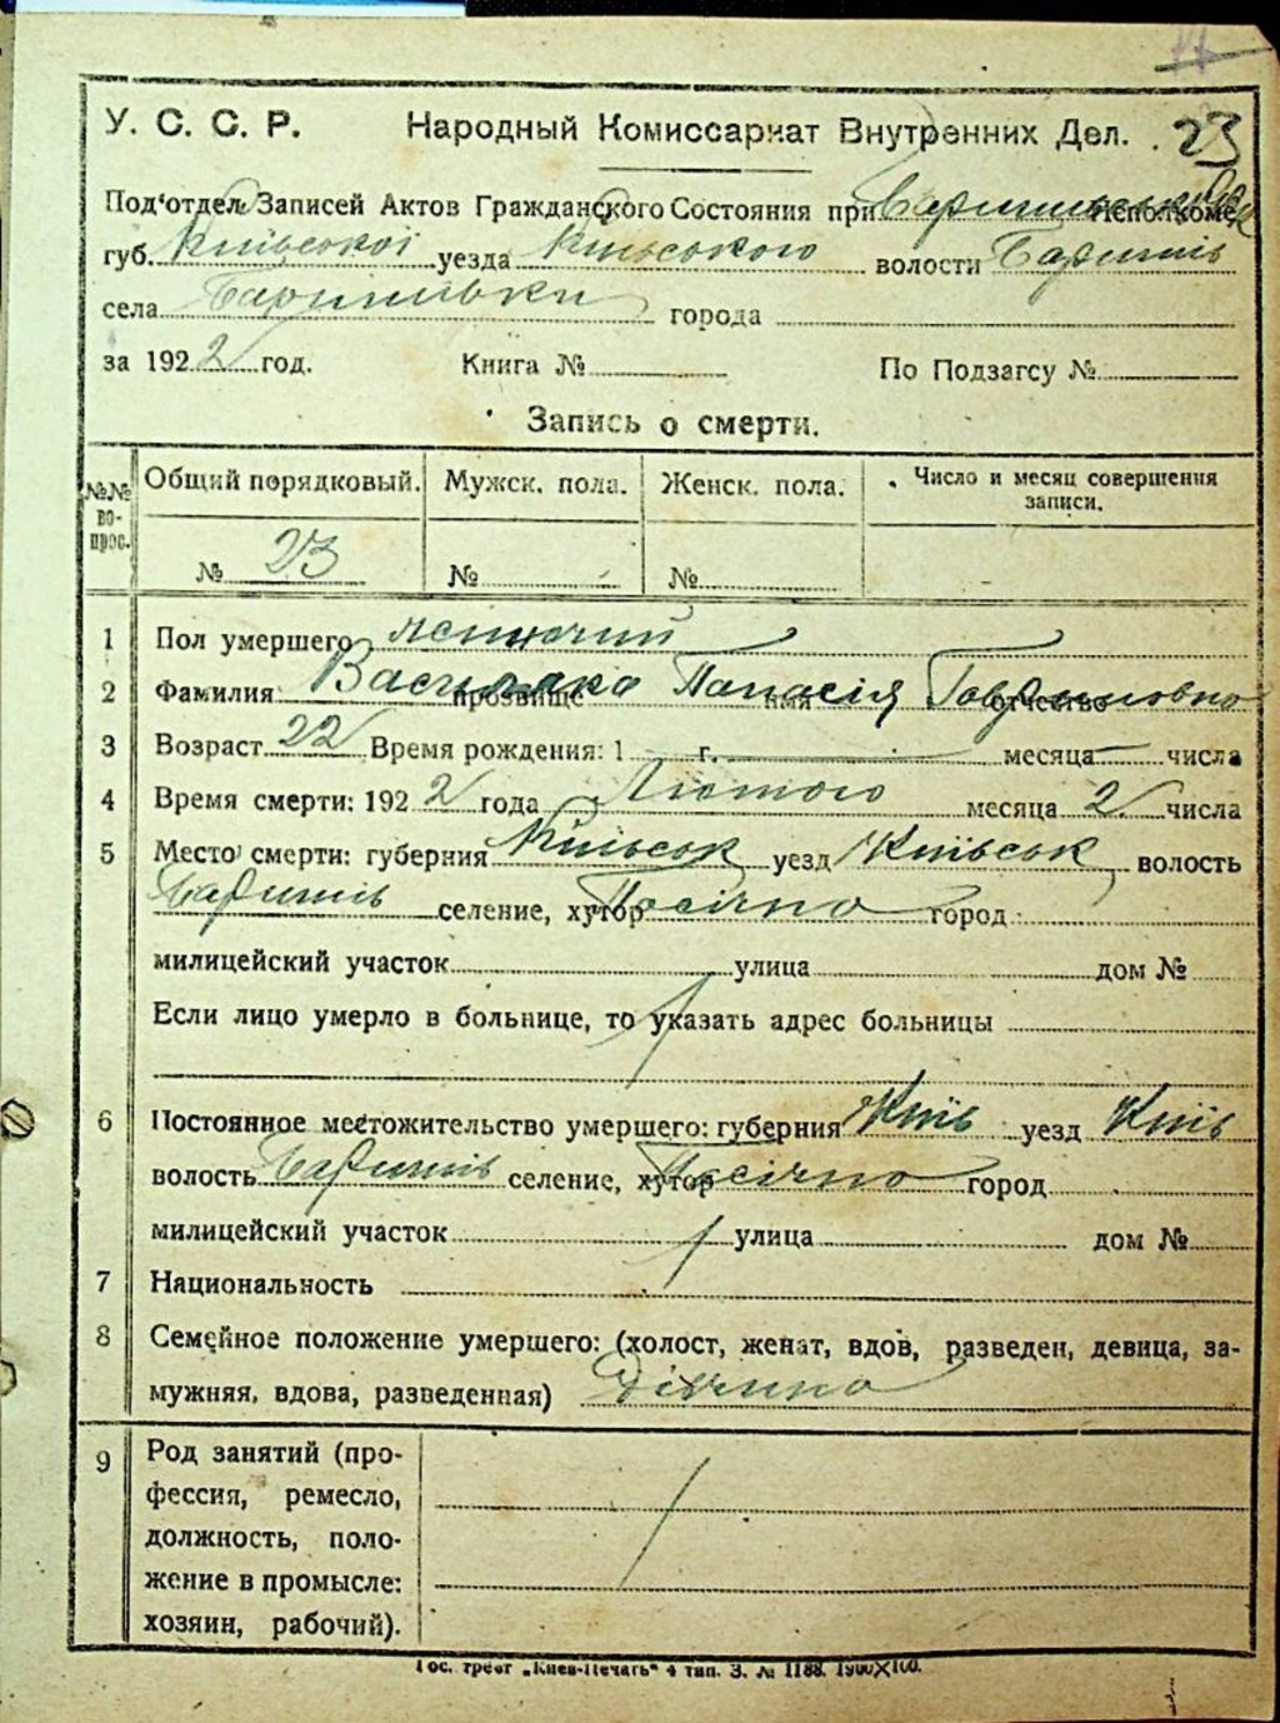 У. С. С. Р. Народный Комиссариат Внутренних Дел. 23
Под'отдел Записей Актов Гражданского Состояния при Исполкоме,
губ. Київської уезда Київського волости Баришів
села Баришівки города
за 1922 год. Книга № По Подзагсу №
Запись о смерти.
№№ вопрос. Общий порядковый. Мужск. пола. Женск. пола. Число и месяц совершения записи.
№ 23 № №
1 Пол умершего жіночий
2 Фамилия прозвище имя Панасія отчество Гавриловна
3 Возраст 22 Время рождения: 1 г. месяца числа
4 Время смерти: 1922 года Лютого месяца 2 числа
5 Место смерти: губерния Київськ уезд Київськ волость
Баришів селение, хутор город
милицейский участок улица дом №
Если лицо умерло в больнице, то указать адрес больницы
6 Постоянное местожительство умершего: губерния Київ уезд Київ
волость Баришів селение, хутор город
милицейский участок улица дом №
7 Национальность
8 Семейное положение умершего: (холост, женат, вдов, разведен, девица, за-
мужняя, вдова, разведенная) Дівчина
9 Род занятий (про-
фессия, ремесло,
должность, поло-
жение в промысле:
хозяин, рабочий).
Гос. трест „Киев-Печать“ 4 тип. З. № 1188. 1900×100.